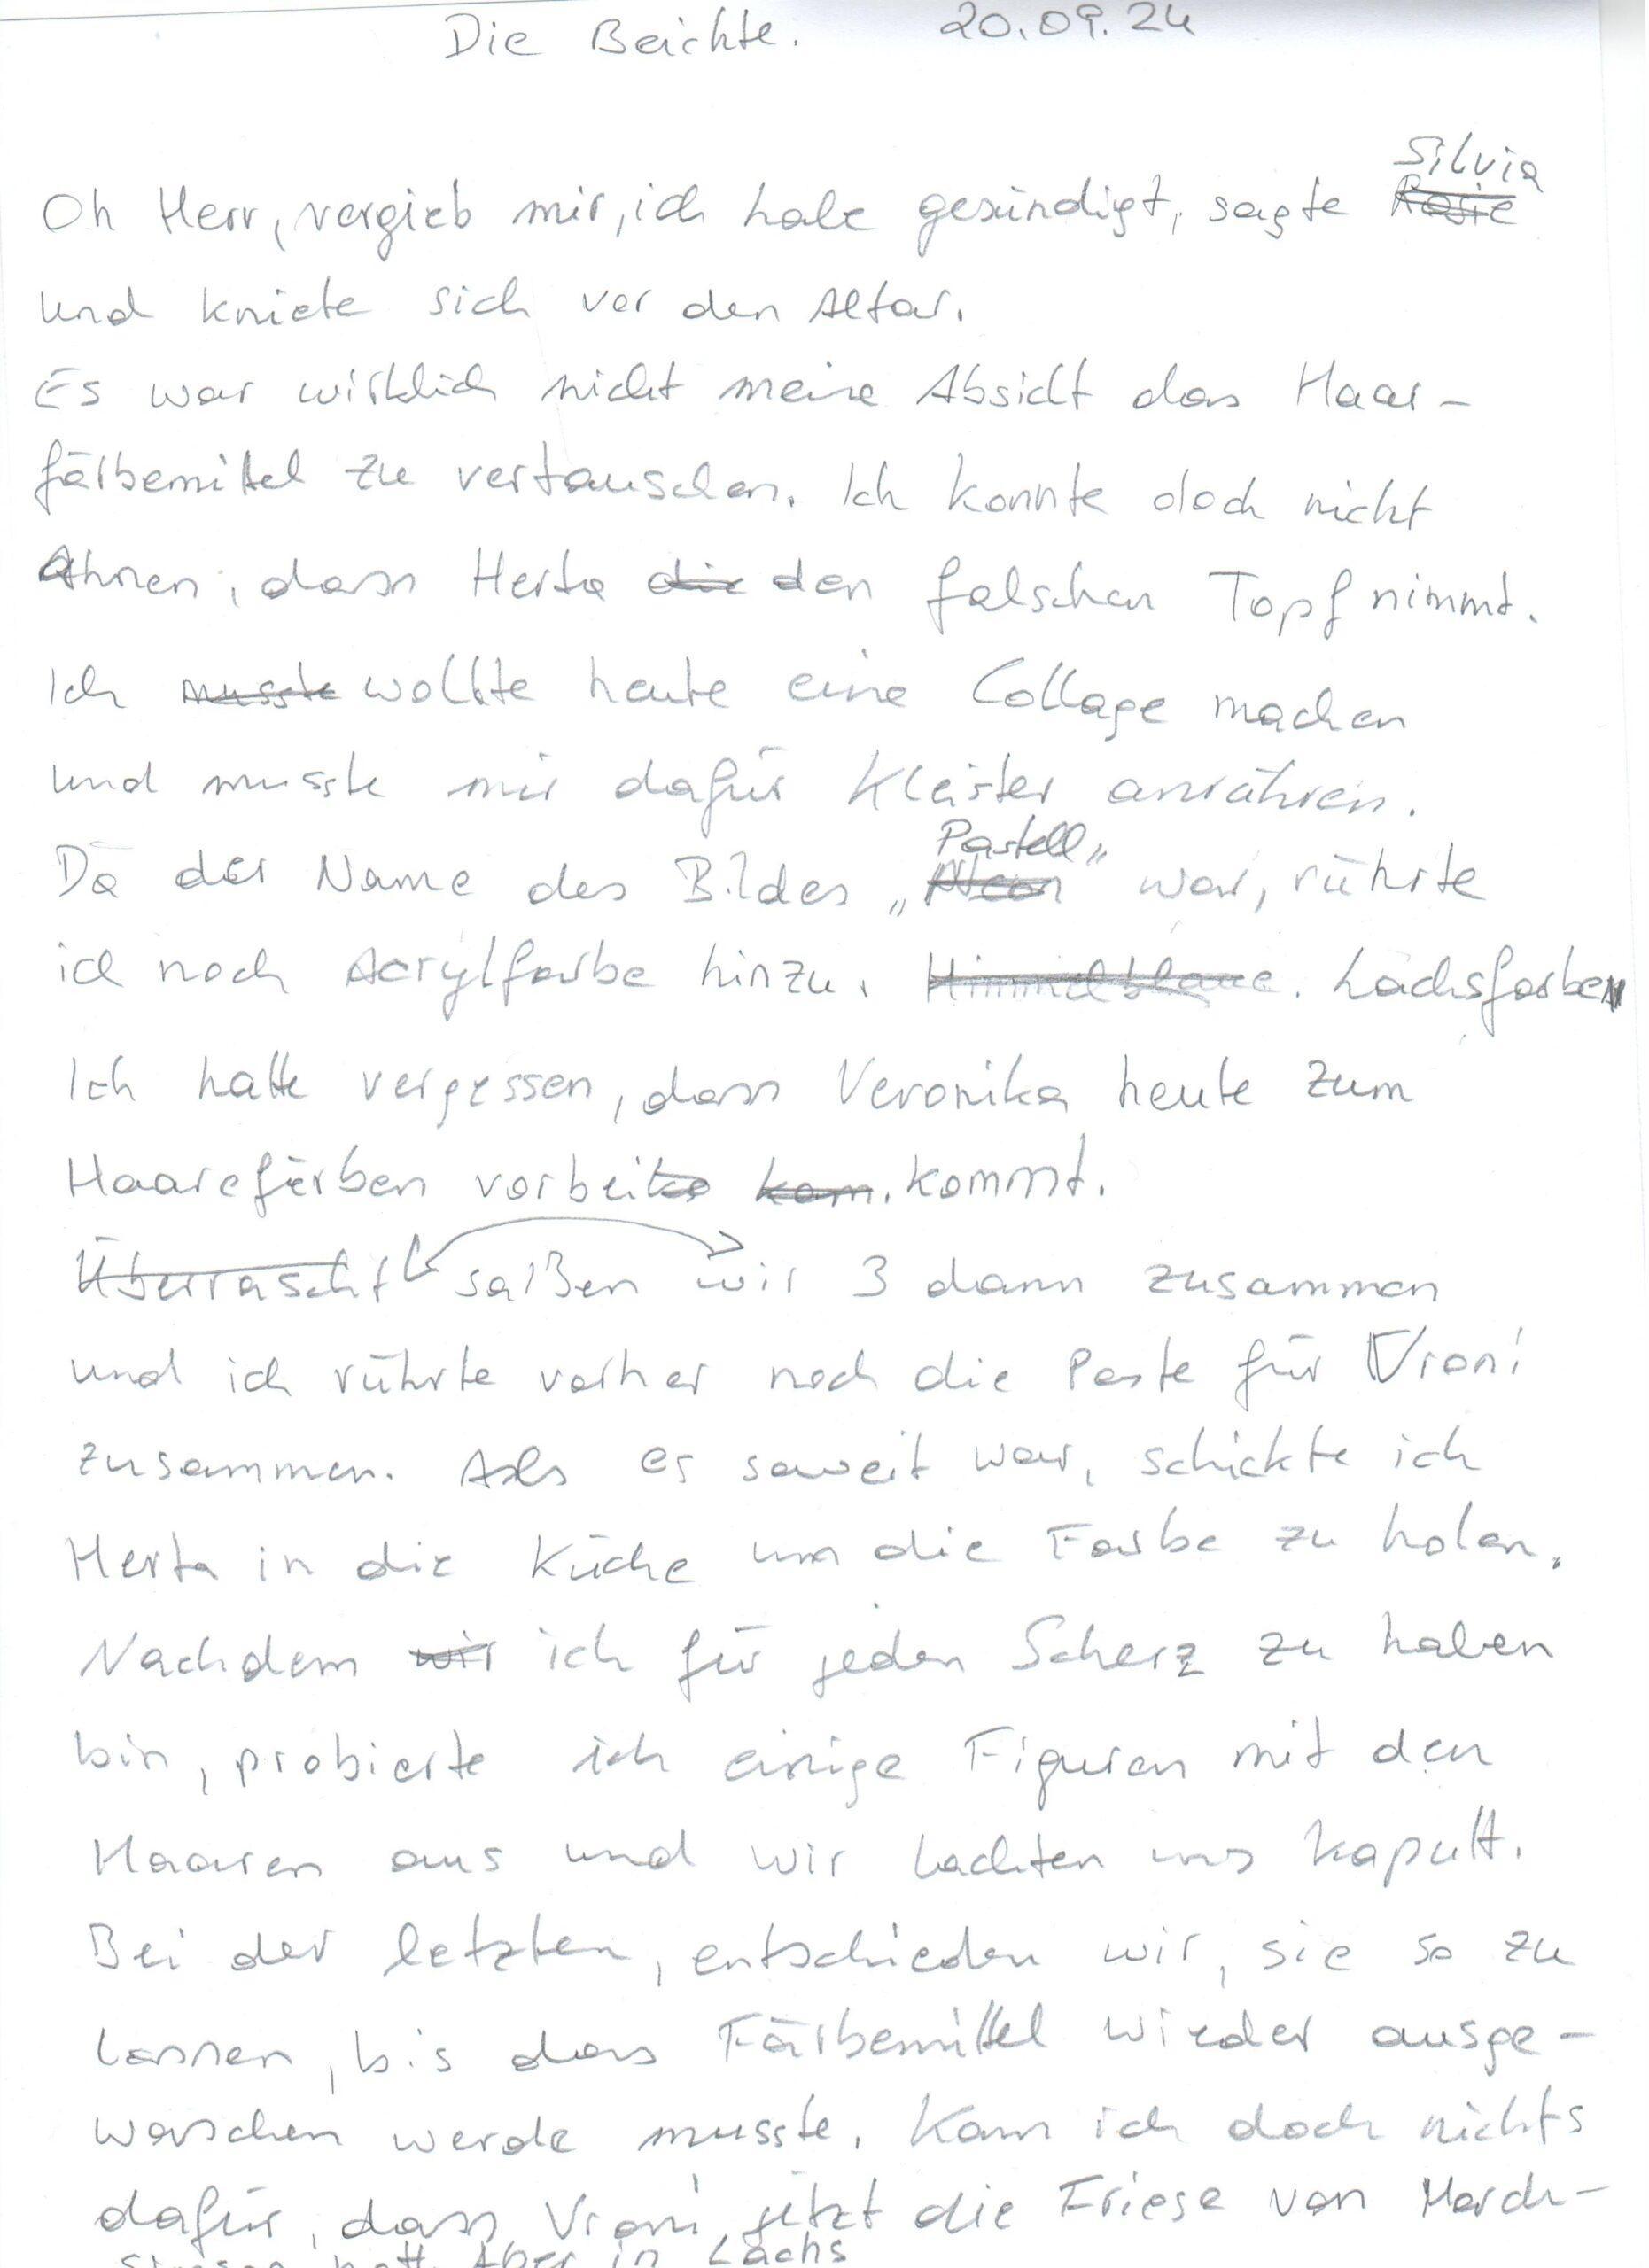 Die Beichte. 20.09.24
Silvia
Oh Herr, vergieb mir, ich habe gesündigt, sagte Rosie
und kniete sich vor den Altar.
Es war wirklich nicht meine Absicht das Haar-
färbemittel zu vertauschen. Ich konnte doch nicht
Ahnen, dass Herta die den falschen Topf nimmt.
Ich musste wollte heute eine Collage machen
und musste mir dafür Kleister anrühren.
Pastell"
Da der Name des Bildes „Neon" war, rührte
ich noch Acrylfarbe hinzu. Himmelblaue. Lachsfarben
Ich hatte vergessen, dass Veronika heute zum
Haarefärben vorbei kam. kommt.
Überrascht saßen wir 3 dann zusammen
und ich rührte vorher noch die Paste für Vroni
zusammen. Als es soweit war, schickte ich
Herta in die Küche um die Farbe zu holen.
Nachdem wir ich für jeden Scherz zu haben
bin, probierte ich einige Figuren mit den
Haaren aus und wir lachten uns kaputt.
Bei der letzten, entschieden wir, sie so zu
lassen, bis das Färbemittel wieder ausge-
waschen werde musste. Kann ich doch nichts
dafür, dass Vroni jetzt die Friese von March-
Simpson hatt. Aber in Lachs